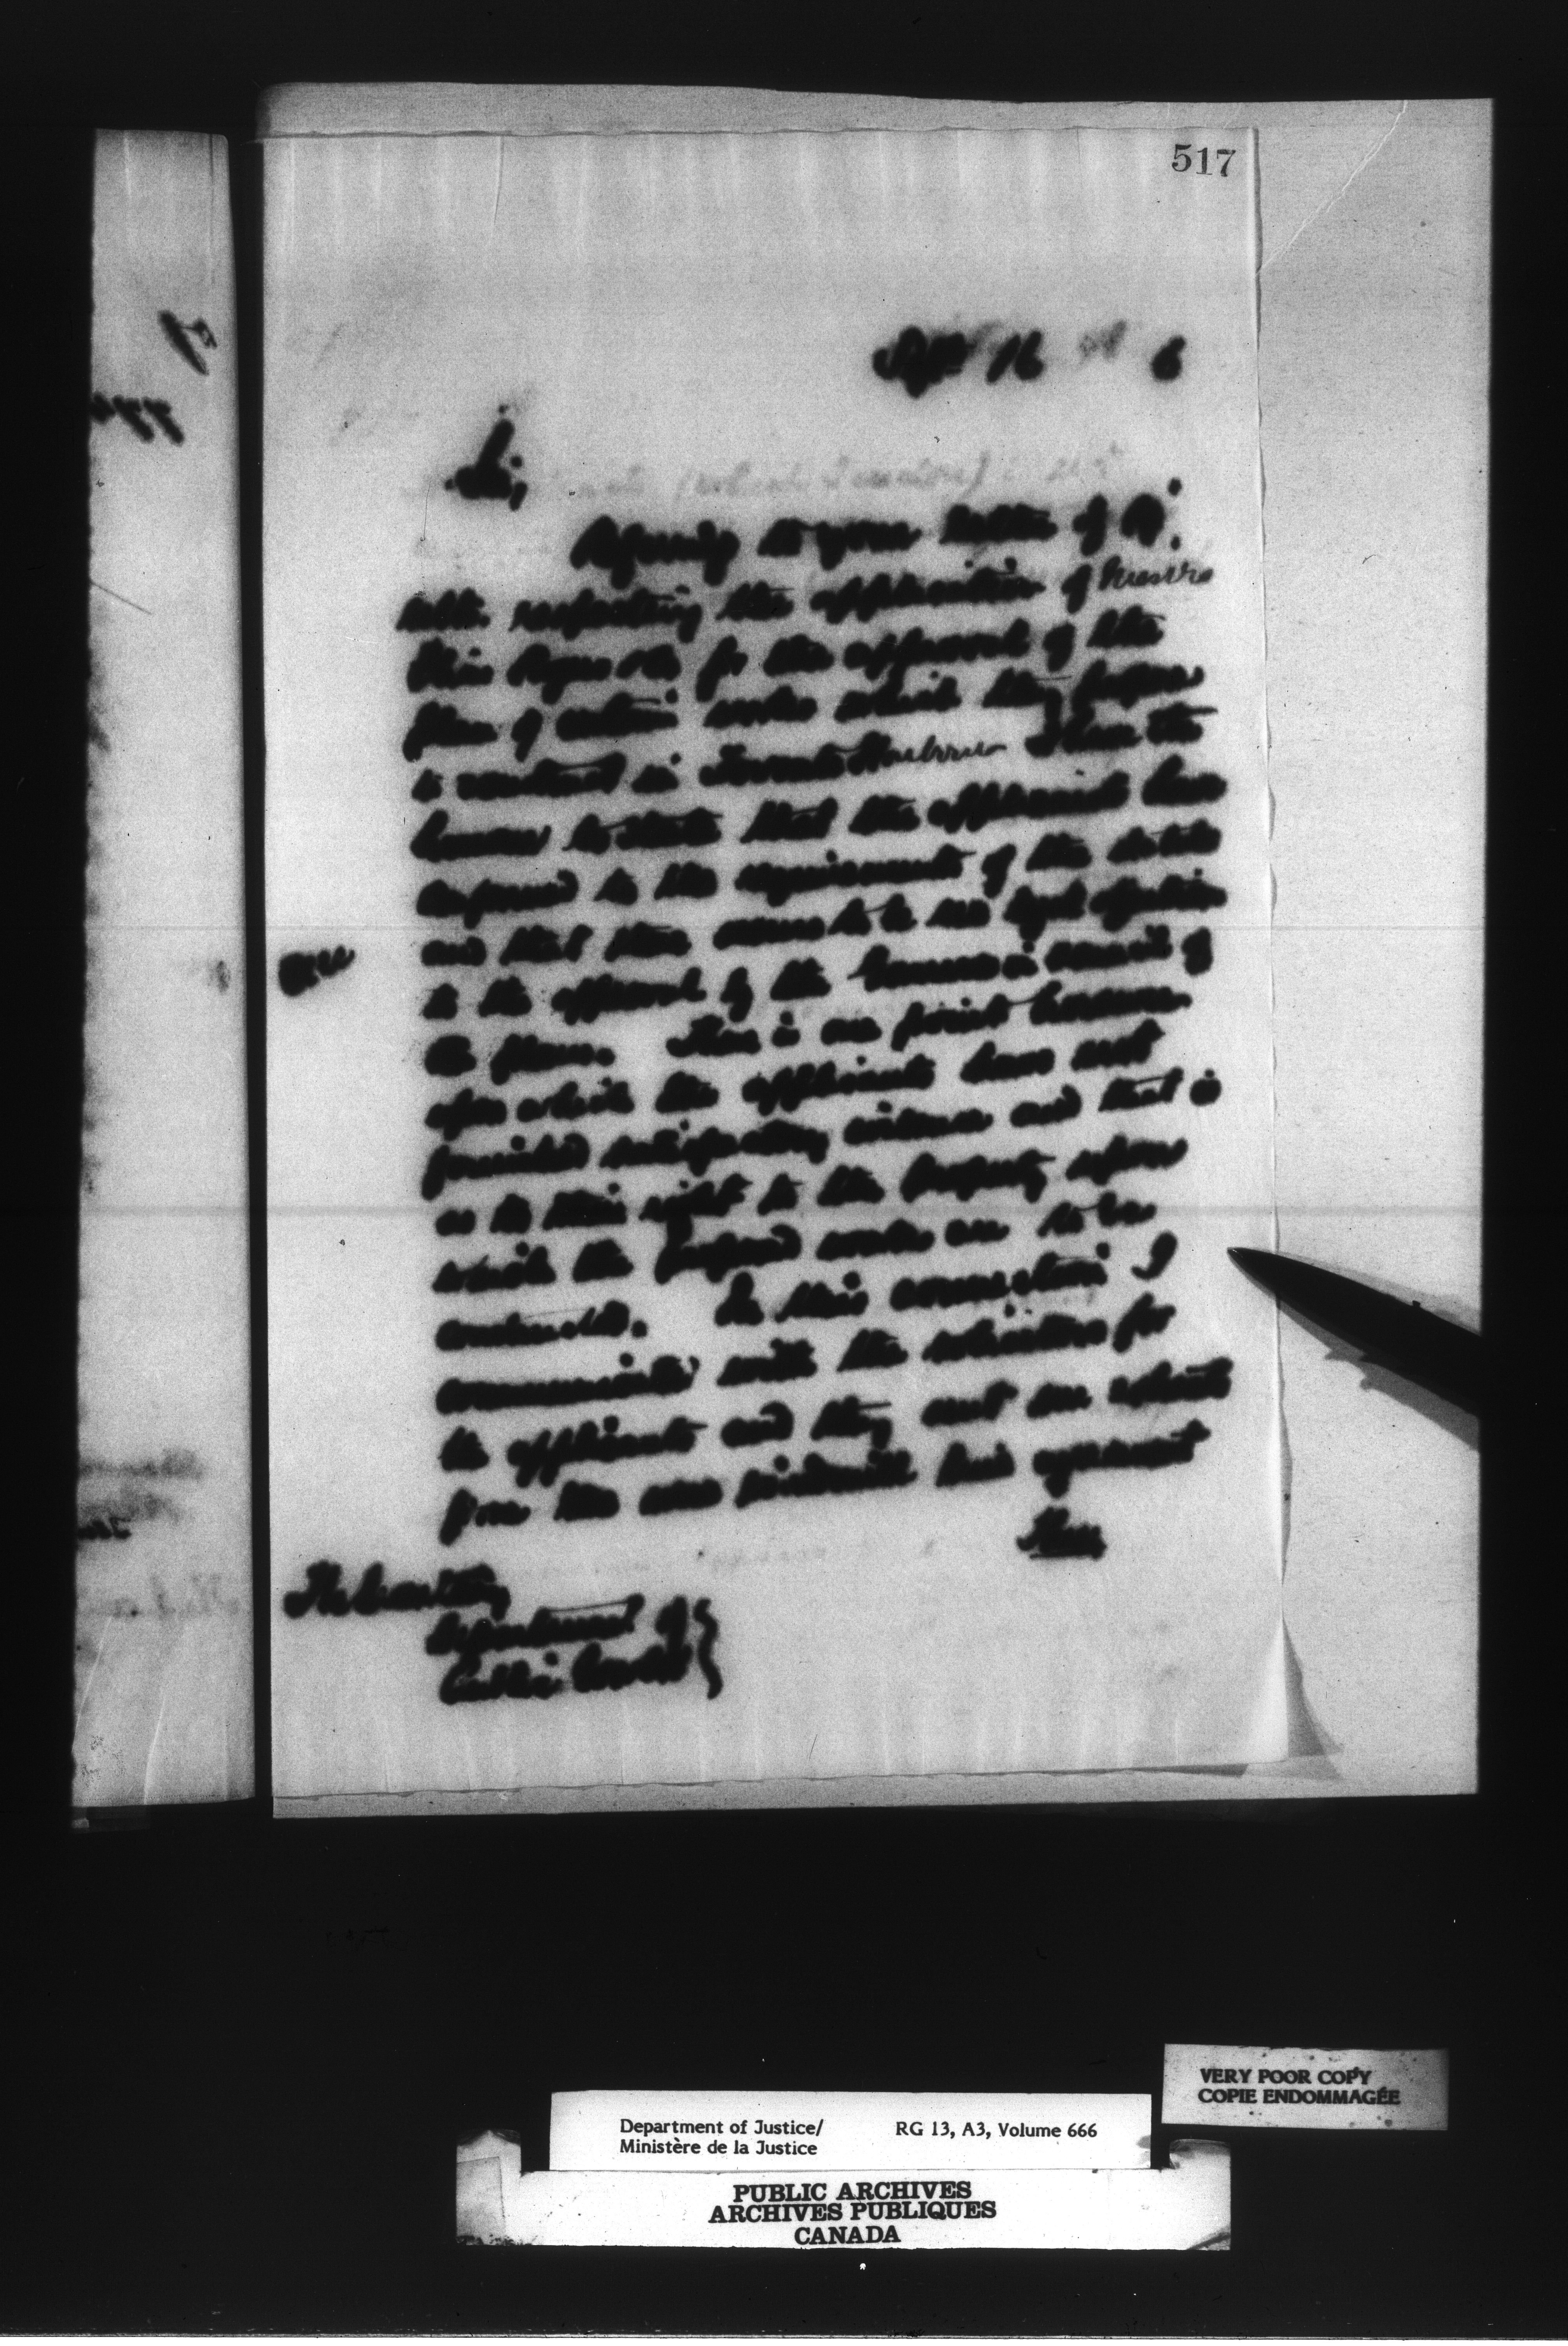 517
Sept 16 6
Sir,
Referring to your letter of
respecting the application of Messrs
Elias Rogers & Co for the approval of the
plan of certain works which they propose
to construct in Toronto Harbour I have the
honour to state that the applicants have
conformed to the requirements of the statute
and that there seems to be no legal objection
to the approval by the Governor in Council of
the plans. There is one point however
upon which the applicants have not
furnished satisfactory evidence and that is
as to their right to the property upon
which the proposed works are to be
constructed. In this connection I
communicated with the solicitors for
the applicants and they sent me
from the
agreement
The Secretary
Department of
Public Works
VERY POOR COPY
COPIE ENDOMMAGÉE
Department of Justice/ RG 13, A3, Volume 666
Ministère de la Justice
PUBLIC ARCHIVES
ARCHIVES PUBLIQUES
CANADA